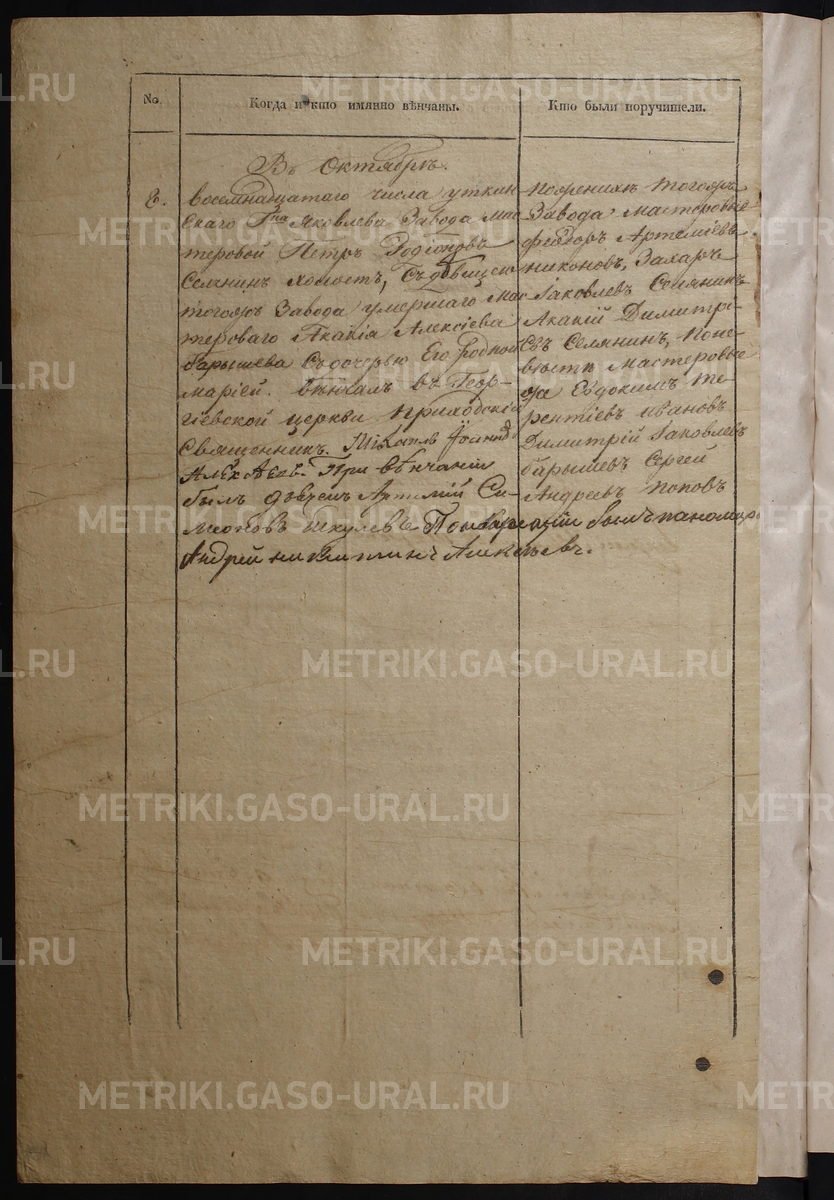 No.
Когда и кто имянно вѣнчаны.
Кто были поручители.
Въ Октябрѣ.
восемнадцатаго числа уткин-
скаго Гна Яковлева Завода мас-
теровой Петръ Родіоновъ
Селянин холостъ, Съ дѣвицею
тогожъ Завода умершаго мас-
тероваго Акакія Алексіева
барышева Съ дочерью Его родною
маріей. вѣнчалъ въ Геор-
гіевской церкви приходскій
Священникъ.
При вѣнчаніи
былъ дьячекъ Артемій Си-
меоновъ шкулевъ былъ паномарь
Андрей
По женихѣ тогожъ
Завода мастеровые
феодоръ Артеміевъ
никоновъ, Захаръ
Іаковлевъ Селянинъ
Акакій Димитрі-
евъ Селянинъ, По не-
вѣстѣ мастеровые
Евдокимъ те-
рентіевъ ивановъ
Димитрій Іаковлевъ
барышевъ Сергей
Андреевъ поповъ
METRIKI.GASO-URAL.RU